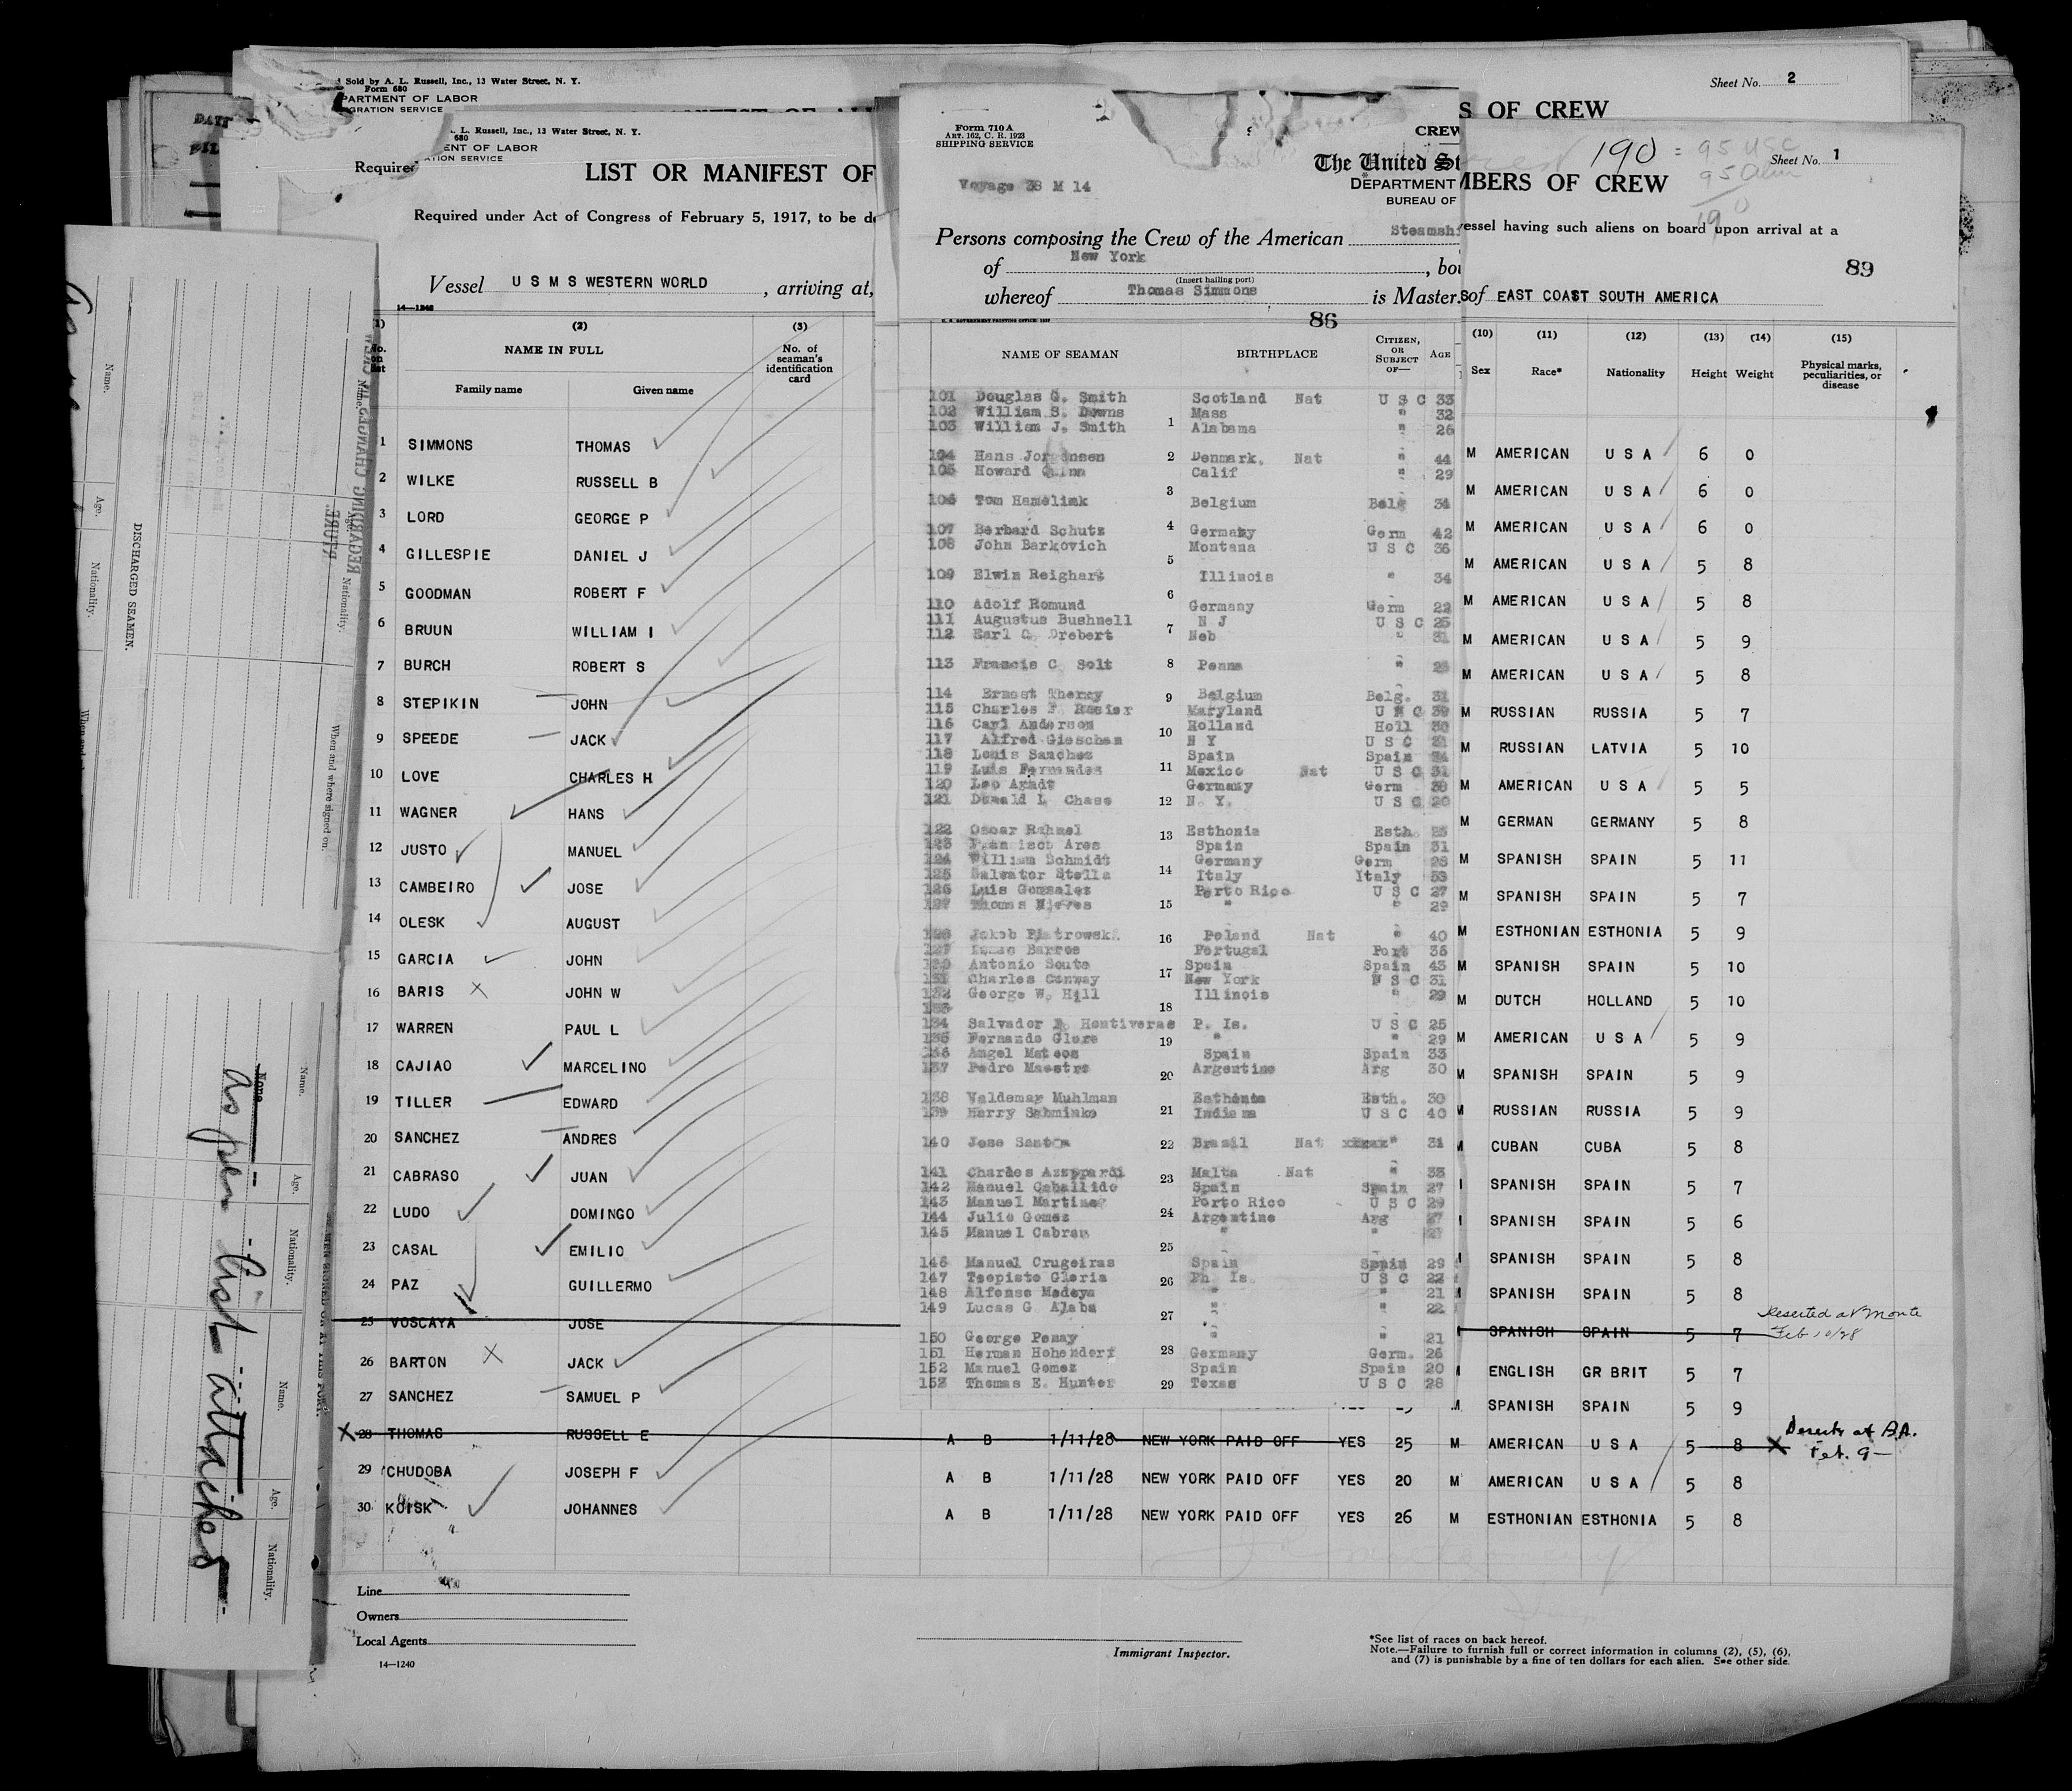 Sold by A. L. Russell, Inc., 13 Water Street, N. Y.
Form 680
PARTMENT OF LABOR
GRATION SERVICE
Sheet No. 2
S OF CREW
L. Russell, Inc., 13 Water Street, N. Y.
680
ENT OF LABOR
ATION SERVICE
Required
LIST OR MANIFEST OF
Required under Act of Congress of February 5, 1917, to be de
Vessel U S M S WESTERN WORLD, arriving at,
14—1240
190 = 95 USC
95 Alien
190
Sheet No. 1
MBERS OF CREW
vessel having such aliens on board upon arrival at a
89
of EAST COAST SOUTH AMERICA
Form 710 A
ART. 162, C. R. 1923
SHIPPING SERVICE
CREW
The United St
DEPARTMENT
BUREAU OF
Voyage 38 M 14
Persons composing the Crew of the American Steamshi
of New York, bou
(Insert hailing port)
whereof Thomas Simmons is Master
86
NAME OF SEAMAN BIRTHPLACE CITIZEN, OR SUBJECT OF— AGE
101 Douglas G. Smith Scotland Nat U S C 33
102 William S. Downs Mass " 32
103 William J. Smith Alabama " 26
104 Hans Jorgensen Denmark. Nat " 44
105 Howard Quinn Calif " 29
106 Tom Hamelink Belgium Belg 34
107 Berbard Schutz Germany Germ 42
108 John Barkovich Montana U S C 36
109 Elwin Reighart Illinois " 34
110 Adolf Romund Germany Germ 22
111 Augustus Bushnell N J U S C 25
112 Earl C. Drebert Neb " 31
113 Francis C. Solt Penna "
114 Ernest Thercy Belgium Belg. 31
115 Charles F. Rasier Maryland U S C 39
116 Carl Anderson Holland Holl 30
117 Alfred Gieschen N Y U S C 21
118 Louis Sanchez Spain Spain
119 Luis Fernandes Mexico Nat U S C 31
120 Leo Arndt Germany Germ
121 Donald L Chase N. Y. U S C 20
122 Oscar Rahmel Esthonia Esth.
123 Francisco Ares Spain Spain 31
124 William Schmidt Germany Germ 28
125 Salvator Stella Italy Italy
126 Luis Gonzalez Porto Rico U S C 27
127 Thomas Nieves " " 29
128 Jakob Piotrowski Poland Nat " 40
Barros Portugal Port 36
Antonio Souto Spain Spain 43
131 Charles Conway New York U S C 31
132 George W. Hill Illinois " 29
133
134 Salvador Hontiveras P. Is. U S C 25
135 Fernando Glore " " 29
136 Angel Mateos Spain Spain 33
137 Pedro Maestre Argentine Arg 30
138 Valdemar Muhlman Esthonia Esth. 30
139 Harry Sabminko Indiana U S C 40
140 Jose Santos Brazil Nat " 31
141 Charles Azzppardi Malta Nat " 33
142 Manuel Caballido Spain Spain 27
143 Manuel Martinez Porto Rico U S C 29
144 Julio Gomez Argentine Arg 27
145 Manuel Cabren " "
146 Manuel Crugeiras Spain Spain 29
147 Teopisto Gloria Ph. Is. U S C 22
148 Alfonso Madeya " " 21
149 Lucas G Alaba " " 22
150 George Penay " " 21
151 Herman Hohendorf Germany Germ. 26
152 Manuel Gomez Spain Spain 20
153 Thomas E. Hunter Texas U S C 28
(1) (2) (3) (10) (11) (12) (13) (14) (15)
No. on list NAME IN FULL No. of seaman's identification card
Family name Given name
Sex Race* Nationality Height Weight Physical marks, peculiarities, or disease
1 SIMMONS THOMAS M AMERICAN U S A 6 0
2 WILKE RUSSELL B M AMERICAN U S A 6 0
3 LORD GEORGE P M AMERICAN U S A 6 0
4 GILLESPIE DANIEL J M AMERICAN U S A 5 8
5 GOODMAN ROBERT F M AMERICAN U S A 5 8
6 BRUUN WILLIAM I M AMERICAN U S A 5 9
7 BURCH ROBERT S M AMERICAN U S A 5 8
8 STEPIKIN JOHN M RUSSIAN RUSSIA 5 7
9 SPEEDE JACK M RUSSIAN LATVIA 5 10
10 LOVE CHARLES H M AMERICAN U S A 5 5
11 WAGNER HANS M GERMAN GERMANY 5 8
12 JUSTO MANUEL M SPANISH SPAIN 5 11
13 CAMBEIRO JOSE M SPANISH SPAIN 5 7
14 OLESK AUGUST M ESTHONIAN ESTHONIA 5 9
15 GARCIA JOHN M SPANISH SPAIN 5 10
16 BARIS JOHN W M DUTCH HOLLAND 5 10
17 WARREN PAUL L M AMERICAN U S A 5 9
18 CAJIAO MARCELINO M SPANISH SPAIN 5 9
19 TILLER EDWARD M RUSSIAN RUSSIA 5 9
20 SANCHEZ ANDRES M CUBAN CUBA 5 8
21 CABRASO JUAN SPANISH SPAIN 5 7
22 LUDO DOMINGO SPANISH SPAIN 5 6
23 CASAL EMILIO SPANISH SPAIN 5 8
24 PAZ GUILLERMO SPANISH SPAIN 5 8
25 VOSCAYA JOSE SPANISH SPAIN 5 7 Deserted at Monte Feb 10/28
26 BARTON JACK ENGLISH GR BRIT 5 7
27 SANCHEZ SAMUEL P M SPANISH SPAIN 5 9
28 THOMAS RUSSELL E A B 1/11/28 NEW YORK PAID OFF YES 25 M AMERICAN U S A 5 8 Deserts at B.A. Feb. 9—
29 CHUDOBA JOSEPH F A B 1/11/28 NEW YORK PAID OFF YES 20 M AMERICAN U S A 5 8
30 KOISK JOHANNES A B 1/11/28 NEW YORK PAID OFF YES 26 M ESTHONIAN ESTHONIA 5 8
Line
Owners
Local Agents
14—1240
Immigrant Inspector.
*See list of races on back hereof.
Note.—Failure to furnish full or correct information in columns (2), (5), (6),
and (7) is punishable by a fine of ten dollars for each alien. See other side.
DISCHARGED SEAMEN.
Name. Age. Nationality. When and where signed on.
REGARDING CHANGES IN CREW
Name. Age. Nationality. Name. Age. Nationality.
None
As per list attached